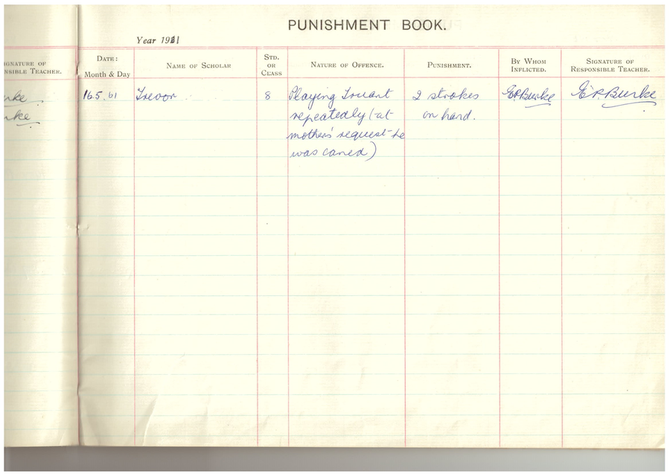 PUNISHMENT BOOK.
Year 1961
SIGNATURE OF
RESPONSIBLE TEACHER.
DATE:
Month & Day
NAME OF SCHOLAR
STD.
OR
CLASS
NATURE OF OFFENCE.
PUNISHMENT.
BY WHOM
INFLICTED.
SIGNATURE OF
RESPONSIBLE TEACHER.
16.5.61 Trevor 8 Playing Truant 2 strokes E.P.Burke E.P.Burke
repeatedly (at on hand.
mother's request he
was caned)